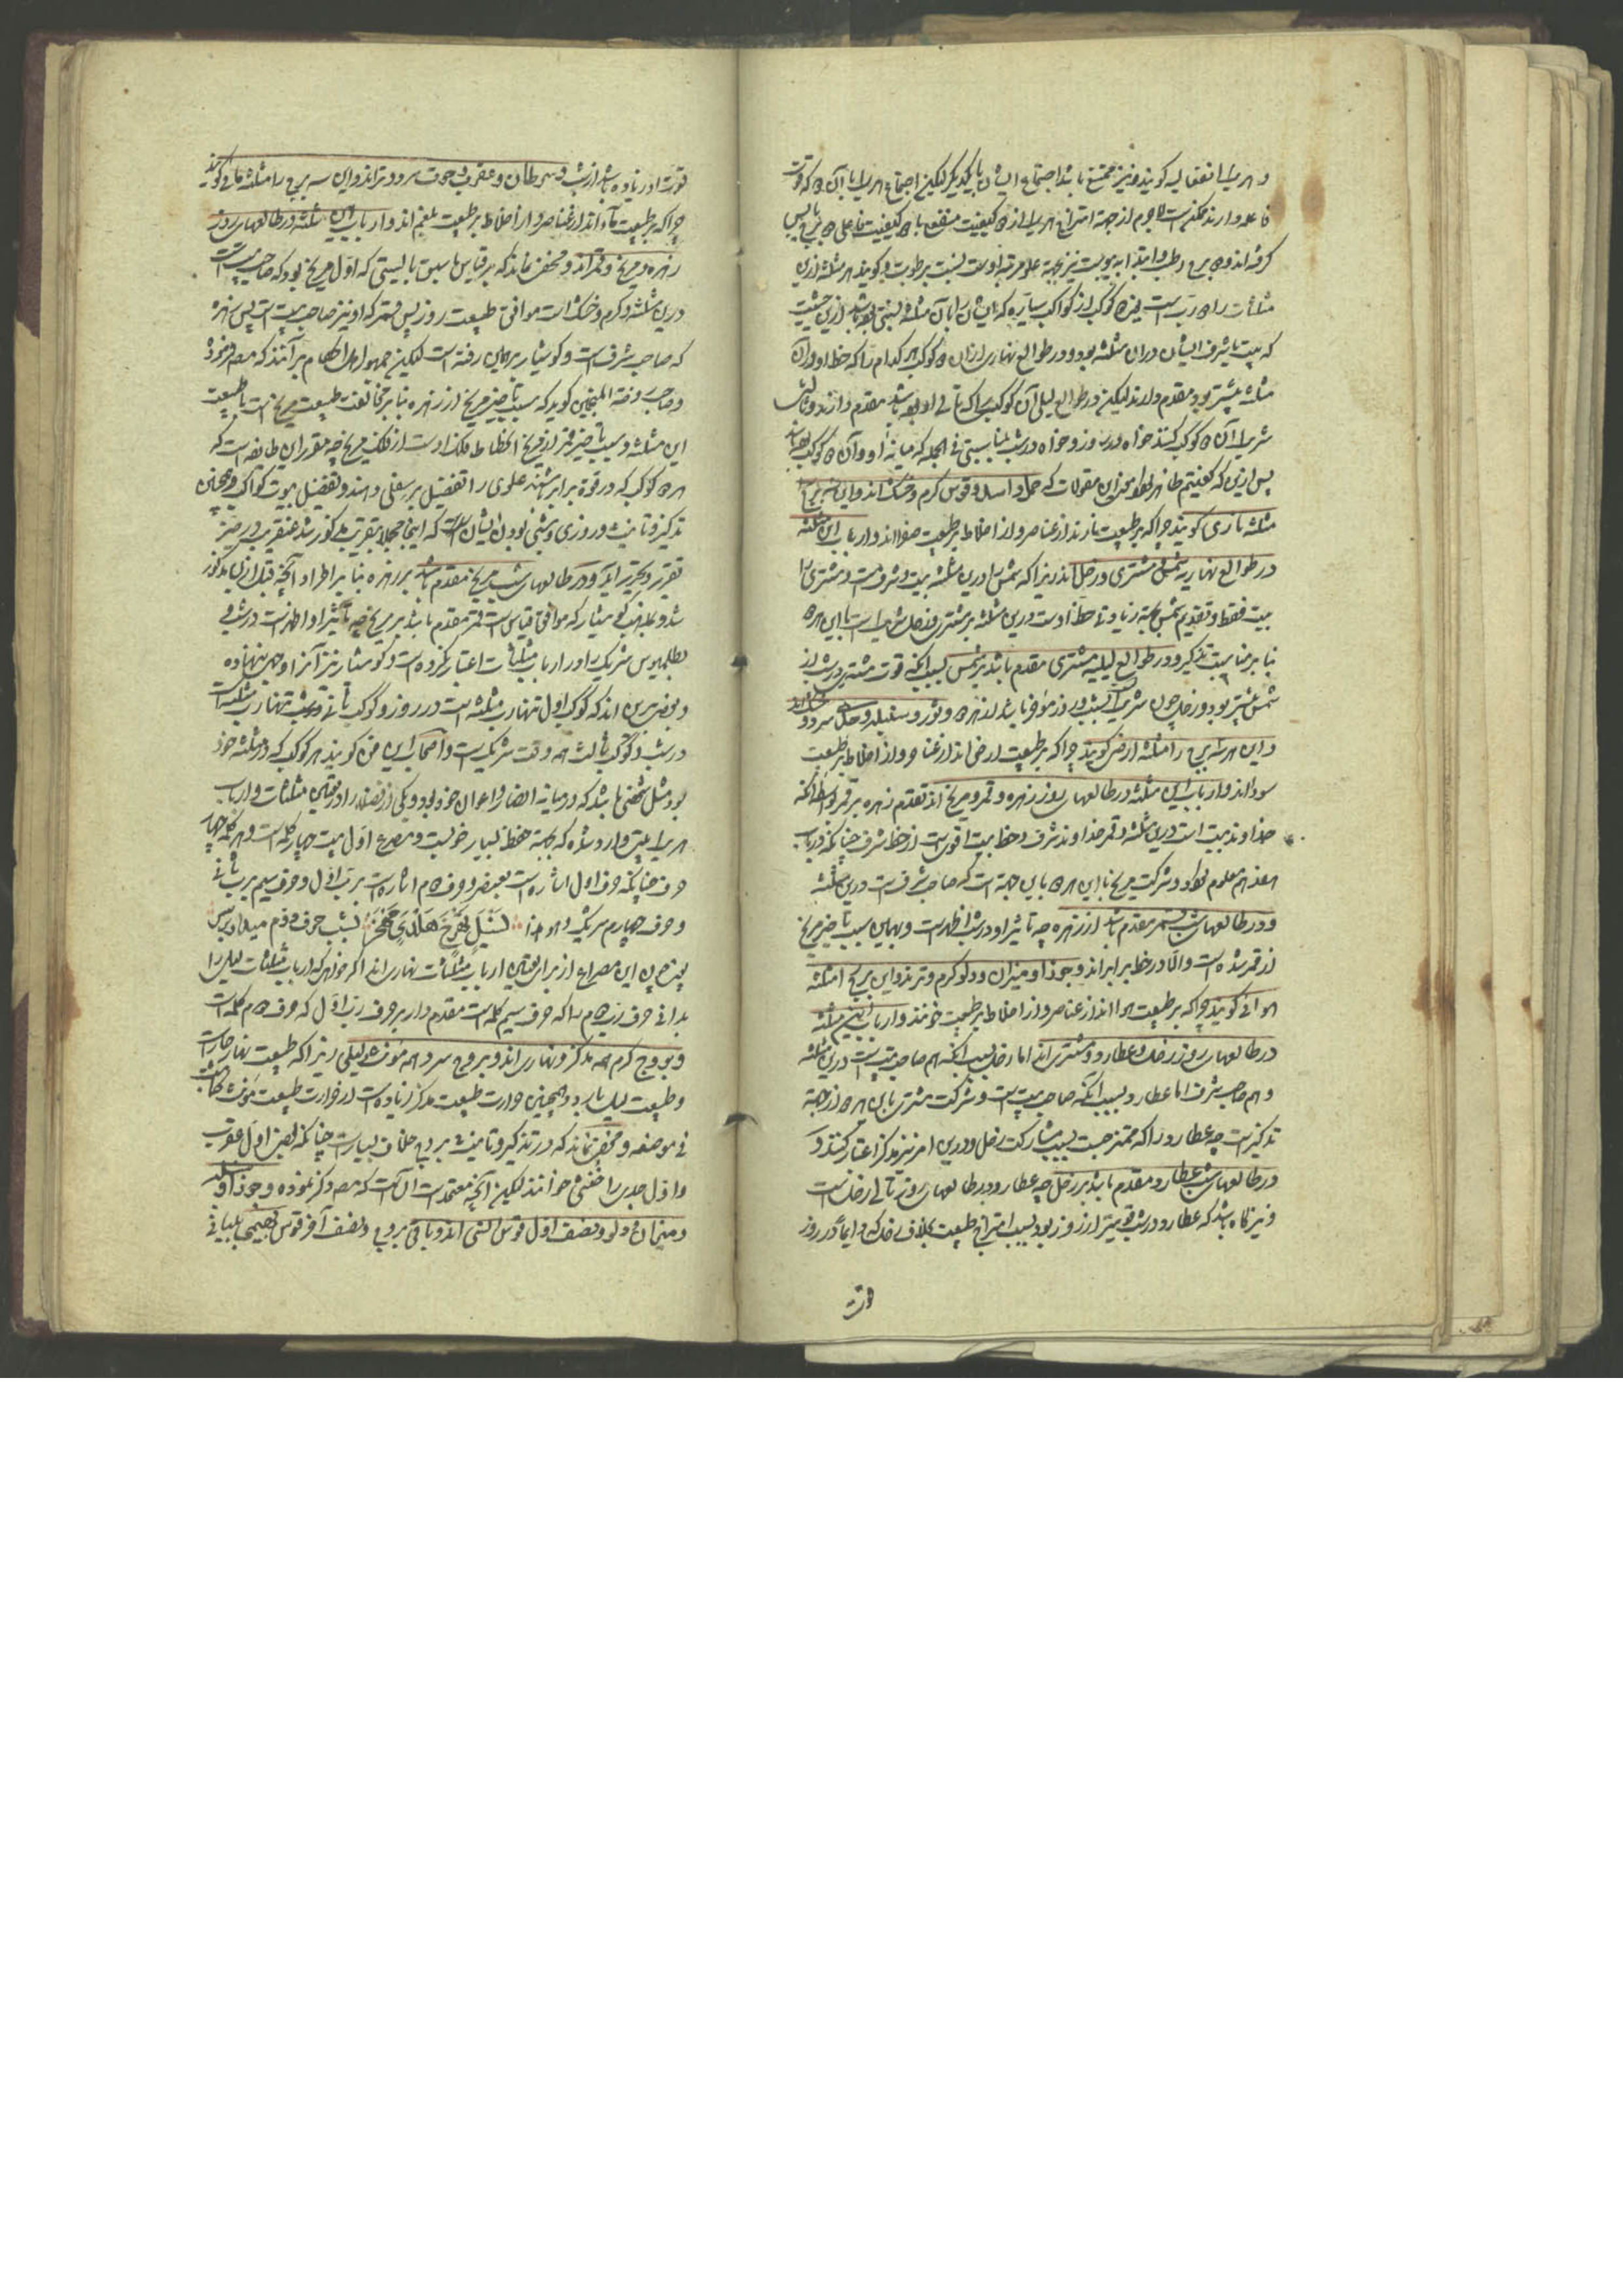 و هر یک را انفعالیه گویند و نیز ممتنع باشد اجتماع ایشان با یکدیگر لیکن اجتماع هر یک را با آن که قوت
فاعله دارند ممکنست لاجرم از جهة امتزاج هر یک از کیفیت منفعل با کیفیت فاعلی برج یابس
گرفته‌اند و برج رطب و ابتدا به یبوست نیز بجهة علو مرتبه اوست نسبت برطوبت و گویند هر مثلثه ازین
مثلثات را رب است یعنی کوکب از کواکب سیاره که ایشان را بآن مثلثه نسبتی بوده باشد ازین حیثیت
که بیت یا شرف ایشان در آن مثلثه بود و در طوالع نهاری از آن کوکب هر کدام را که حظ او در آن
مثلثه بیشتر بود مقدم دارند لیکن در طوالع لیلی آن کوکب را که تالی او بوده باشد مقدم دارند و ثالث
شریک آن کوکب کنند خواه در روز و خواه در شب بمناسبتی فی الجمله که میانه او و آن کوکب بوده باشد
پس ازین که گفتیم ظاهر بود این مقولات که حمل و اسد و قوس گرم و خشک‌اند و این سه برج را
مثلثه ناری گویند چرا که بر طبیعت نارند از عناصر و از اخلاط بر طبیعت صفرااند و ارباب این مثلثه
در طوالع نهاریه شمس و مشتری و زحل‌اند زیرا که شمس را درین مثلثه بیت و شرف است و مشتری را
بیت فقط و تقدیم شمس بجهة زیادتی حظ اوست درین مثلثه بر مشتری و زحل شریک است با این هر
بنابر مناسبت تذکیر و در طوالع لیلیه مشتری مقدم باشد بر شمس بسبب آنکه قوت مشتری در شب از
شمس بیشتر بود و زحل چون شریک است در شب و روز مؤخر باشد از هر و ثور و سنبله و جدی سرد و خشک‌اند
و این هر سه برج را مثلثه ارضی گویند چرا که بر طبیعت ارض‌اند از عناصر و از اخلاط بر طبیعت
سودااند و ارباب این مثلثه در طالعهای روز زهره و قمر و مریخ‌اند تقدم زهره بر قمر بواسطه آنکه
خداوند بیت است درین مثلثه و قمر خداوند شرف و حظ بیت اقویست از حظ شرف چنانکه در باب
هفدهم معلوم بوداد و شرکت مریخ با این هر باین جهة است که صاحب شرفست درین مثلثه
و در طالعهای شب قمر مقدم باشد از زهره چه تاثیر او در شب اظهرست و بهمین سبب تاخیر مریخ
از قمر شده است والا در حظ برابراند و جوزا و میزان و دلو گرم و تراند و این سه برج را مثلثه
هوائی گویند چرا که بر طبیعت هوااند از عناصر و از اخلاط بر طبیعت خونند و ارباب این مثلثه
در طالعهای روز زحل و عطارد و مشتری‌اند اما زحل بسبب آنکه هم صاحب بیتست درین مثلثه
و هم صاحب شرف اما عطارد بسبب آنکه صاحب بیتست و شرکت مشتری با این هر از جهة
تذکیرست چه عطارد را که ممتزجست بسبب مشارکت زحل درین امر نیز مذکر اعتبار کنند و
در طالعهای شب عطارد مقدم باشد بر زحل چه عطارد در طالعهای روز تالی زحل است
و نیز گاه باشد که عطارد در شب قوی‌تر از روز بود بسبب امتزاج طبیعت بخلاف زحل که دایما در روز
قوت
قوت او زیاده باشد از شب و سرطان و عقرب و حوت سرد و تراند و این سه برج را مثلثه مائی گویند
چرا که بر طبیعت ماءاند از عناصر و از اخلاط بر طبیعت بلغم‌اند و ارباب این مثلثه در طالعهای روز
زهره و مریخ و قمراند و مخفی نماند که بر قیاس ما سبق بایستی که اول مریخ بود که صاحب بیت است
درین مثلثه و گرم و خشک است موافق طبیعت روز پس قمر که او نیز صاحب بیت است پس زهره
که صاحب شرفست و کوشیار برهمین رفته است لیکن جمهور اهل احکام بر آنند که مصنف فرمود
و صاحب روضة المنجمین گوید که سبب تاخیر مریخ از زهره بنابر مخالفت طبیعت مریخ است با طبیعت
این مثلثه و سبب تاخیر قمر از مریخ انحطاط فلک اوست از فلک مریخ چه مقرر این طایفه است که
هر کوکب که در قوة برابر باشند علوی را تفضیل بر سفلی دهند و تفصیل بیوت کواکب و همچنین
تذکیر و تانیث و روزی و شبی بودن ایشان است که اینجا مجملا بتقریب مذکور شد عنقریب در حیز
تقریر و تحریر آید و در طالعهای شب مریخ مقدم باشد بر زهره بنابر اطراد آنچه قبل ازین مذکور
شد و بمذهب کوشیار که موافق قیاس است قمر مقدم باشد بر مریخ چه تاثیر او اظهرست در شب و
بطلمیوس شریک را در ارباب مثلثات اعتبار نکرده است و کوشیار نیز آنرا وجهی ننهاده
و بعضی برین‌اند که کوکب اول تنها رب مثلثه است در روز و کوکب ثانی در شب تنها رب مثلثه است
در شب و کوکب ثالث همه وقت شریکست و اصحاب این فن گویند هر کوکب که در مثلثه خود
بود مثل شخصی باشد که در میانه انصار و اعوان خود بود و یکی از فضلا را در تعیین مثلثات و ارباب
هر یک بیتی وارد شده که بجهة حفظ بسیار خوبست و مصرع اول بیت چهار کلمه است و هر کلمه چهار
حرف چنانکه حرف اول اشاره است بعنصر و حرف دوم اشاره است برب اول و حرف سیم برب ثانی
و حرف چهارم شریک و هو هذا
بشب حرف دوم میدار بر پس
یعنی چون این مصراع از برای تعیین ارباب مثلثات نهاری‌اند اگر خواهی که ارباب مثلثات لیلی را
بدانی حرف رب دوم را که حرف سیم کلمه است مقدم دار بر حرف رب اول که حرف دوم کلمه است
و بروج گرم همه مذکر و نهاری‌اند و بروج سرد همه مؤنث و لیلی زیرا که طبیعت نهار حار است
و طبیعت لیل بارد و همچنین حرارت طبیعت مذکر زیاده است از حرارت طبیعت مؤنث کما ثبت
فی موضعه و مخفی نماند که در تذکیر و تانیث بروج خلاف بسیارست چنانکه بعضی اول عقرب
و اول جدی را خنثی خوانند لیکن آنچه معتمدست آن است که مصنف ذکر نموده و جوزا و سنبله
و میزان و دلو و نصف اول قوس انسی‌اند و باقی بروج و نصف آخر قوس بهیمی بیانی